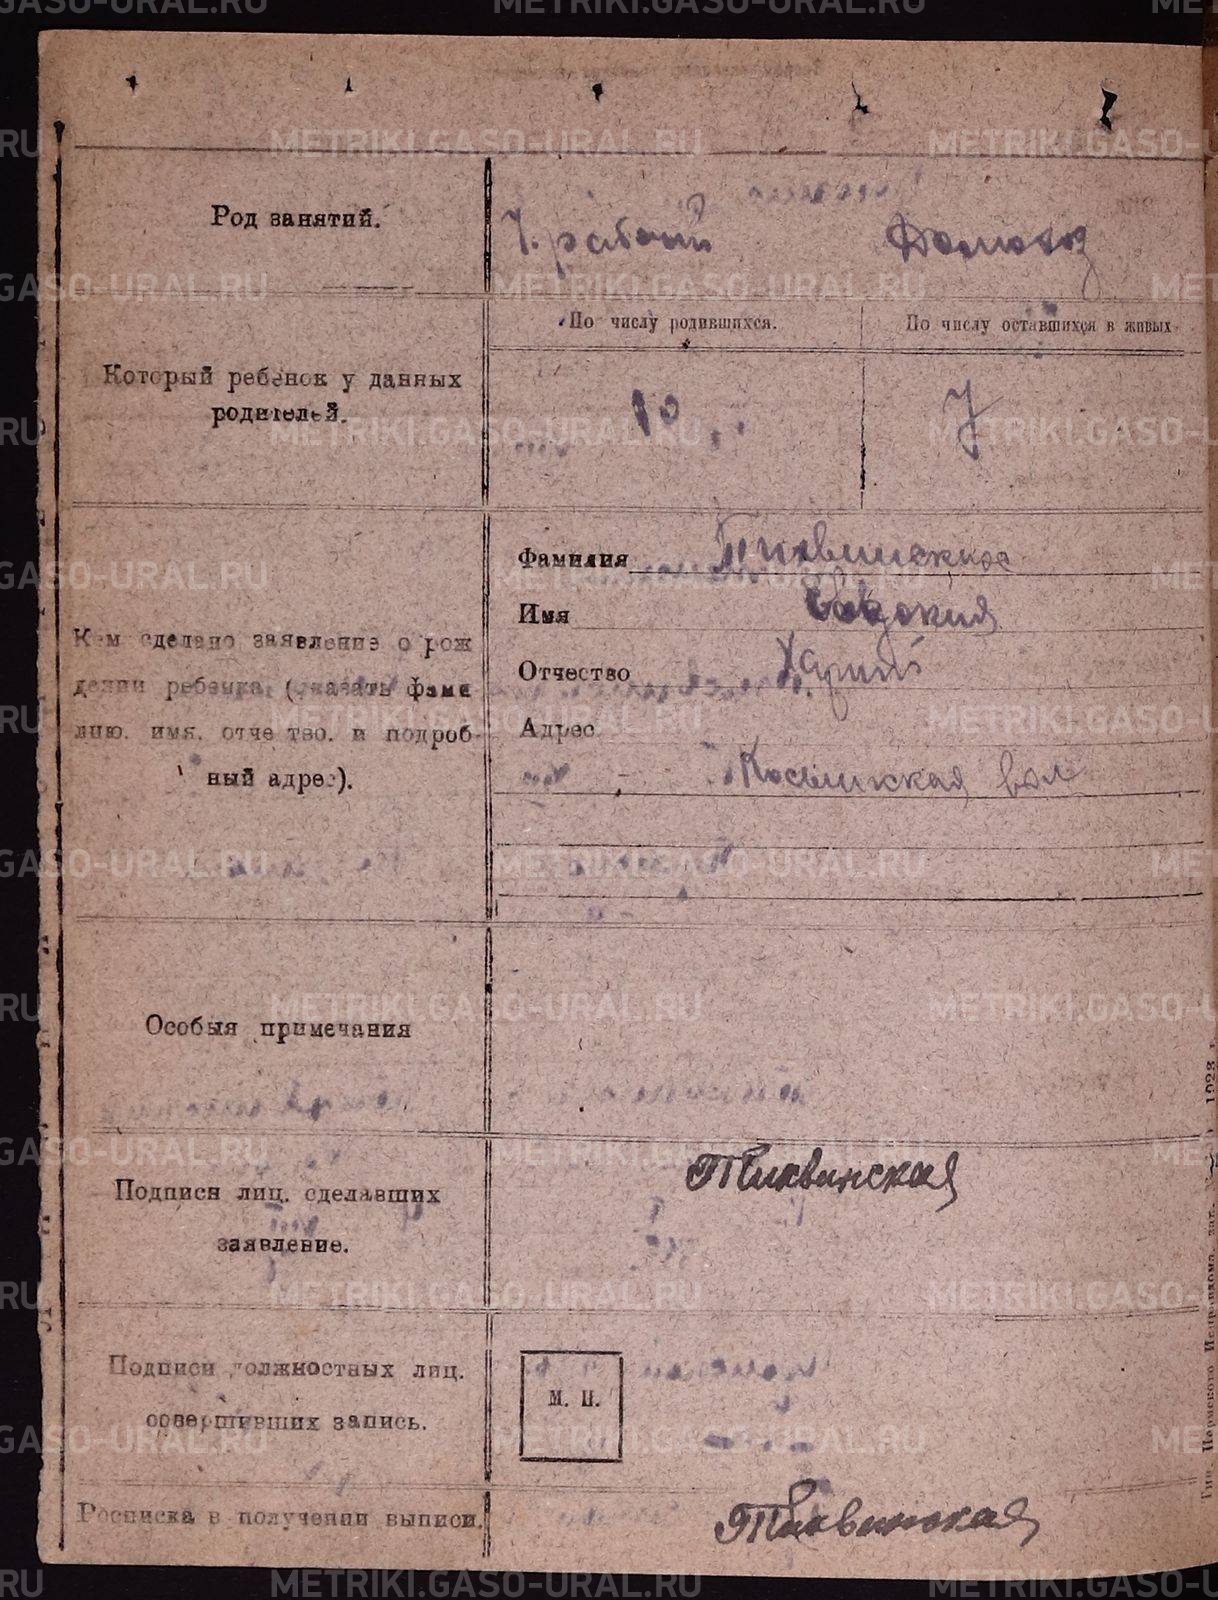 METRIKI.GASO-URAL.RU
Род занятий.
Ч. рабочий
Домохоз
Который ребенок у данных
родителей.
По числу родившихся.
По числу оставшихся в живых
10
7
Кем сделано заявление о рож
дении ребенка (указать фами
лию. имя. отчество. и подроб-
ный адрес).
Фамилия Тихвинская
Имя Евдокия
Отчество
Адрес
вол
Особыя примечания
Подписи лиц. сделавших
заявление.
Тихвинская
Подписи должностных лиц.
совершивших запись.
М. П.
Росписка в получении выписи.
Тихвинская
1923 г.